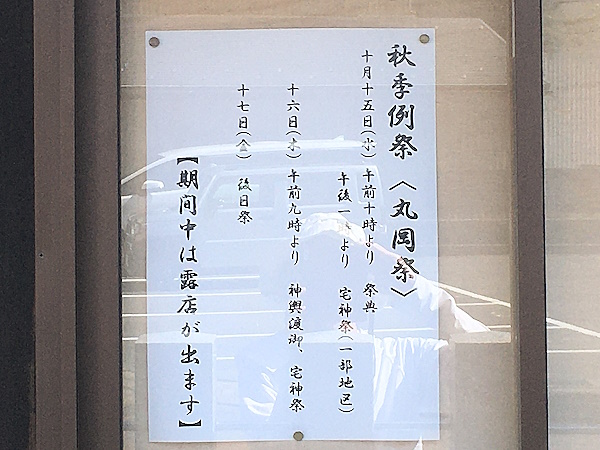 秋季例祭〈丸岡祭〉
十月十五日(水) 午前十時より 祭典
午後一時より 宅神祭(一部地区)
十六日(木) 午前九時より 神輿渡御、宅神祭
十七日(金) 後日祭
【期間中は露店が出ます】